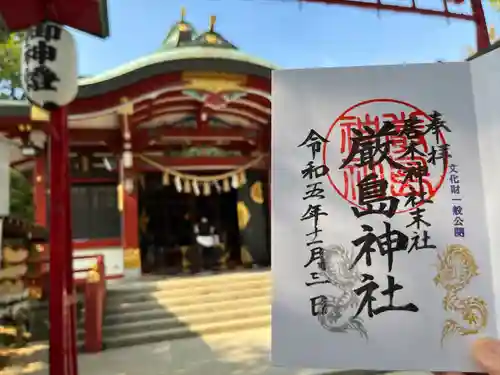 御神燈
奉拝
文化財一般公開
居木神社末社
厳島神社
令和五年十一月三日